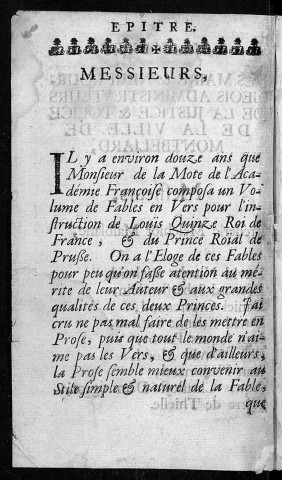 EPITRE.
MESSIEURS,
IL y a environ douze ans que
Monsieur de la Mote de l'Aca-
démie Françoise composa un Vo-
lume de Fables en Vers pour l'in-
struction de Louis Quinze Roi de
France, & du Prince Roial de
Prusse. On a l'Eloge de ces Fables
pour peu qu'on fasse atention au mé-
rite de leur Auteur & aux grandes
qualités de ces deux Princes. J'ai
cru ne pas mal faire de les mettre en
Prose, puis que tout le monde n'ai-
me pas les Vers, & que d'ailleurs,
la Prose semble mieux convenir au
Stile simple & naturel de la Fable,
que